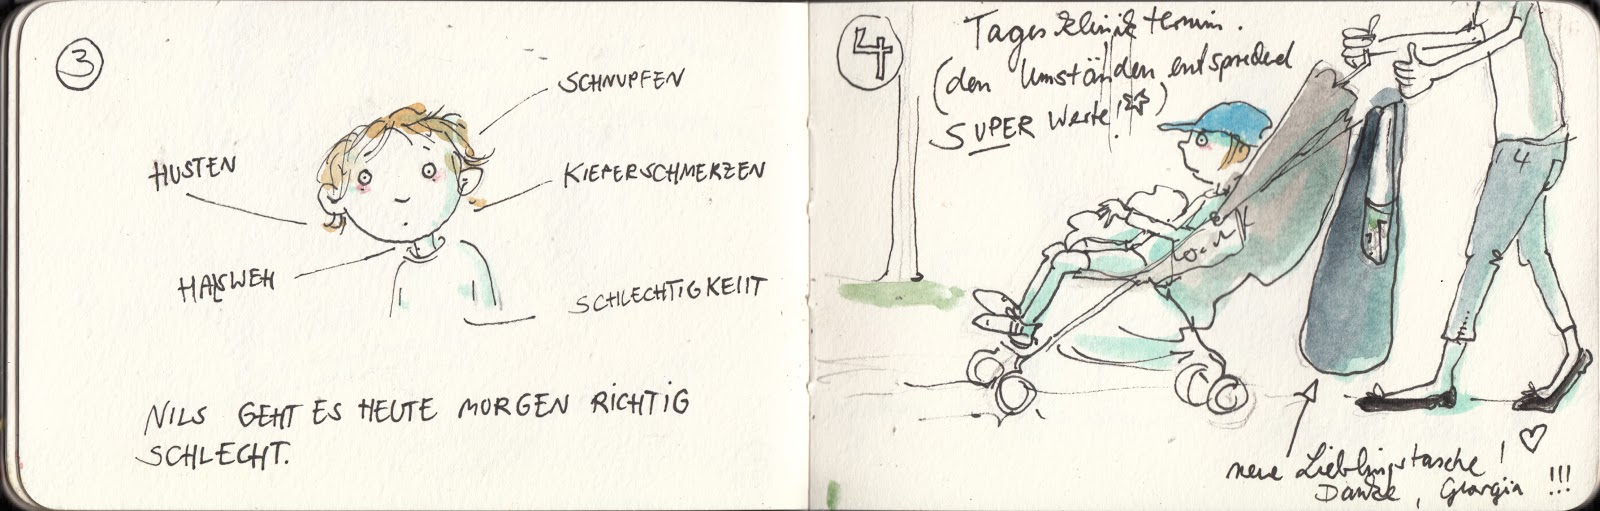 3
SCHNUPFEN
HUSTEN
KIEFERSCHMERZEN
HALSWEH
SCHLECHTIGKEIT
NILS GEHT ES HEUTE MORGEN RICHTIG
SCHLECHT.
4
Tagesklinik termin.
(den Umständen entsprechend
SUPER Werte!☆)
neue Lieblingstasche! ♡
Danke, Georgia !!!